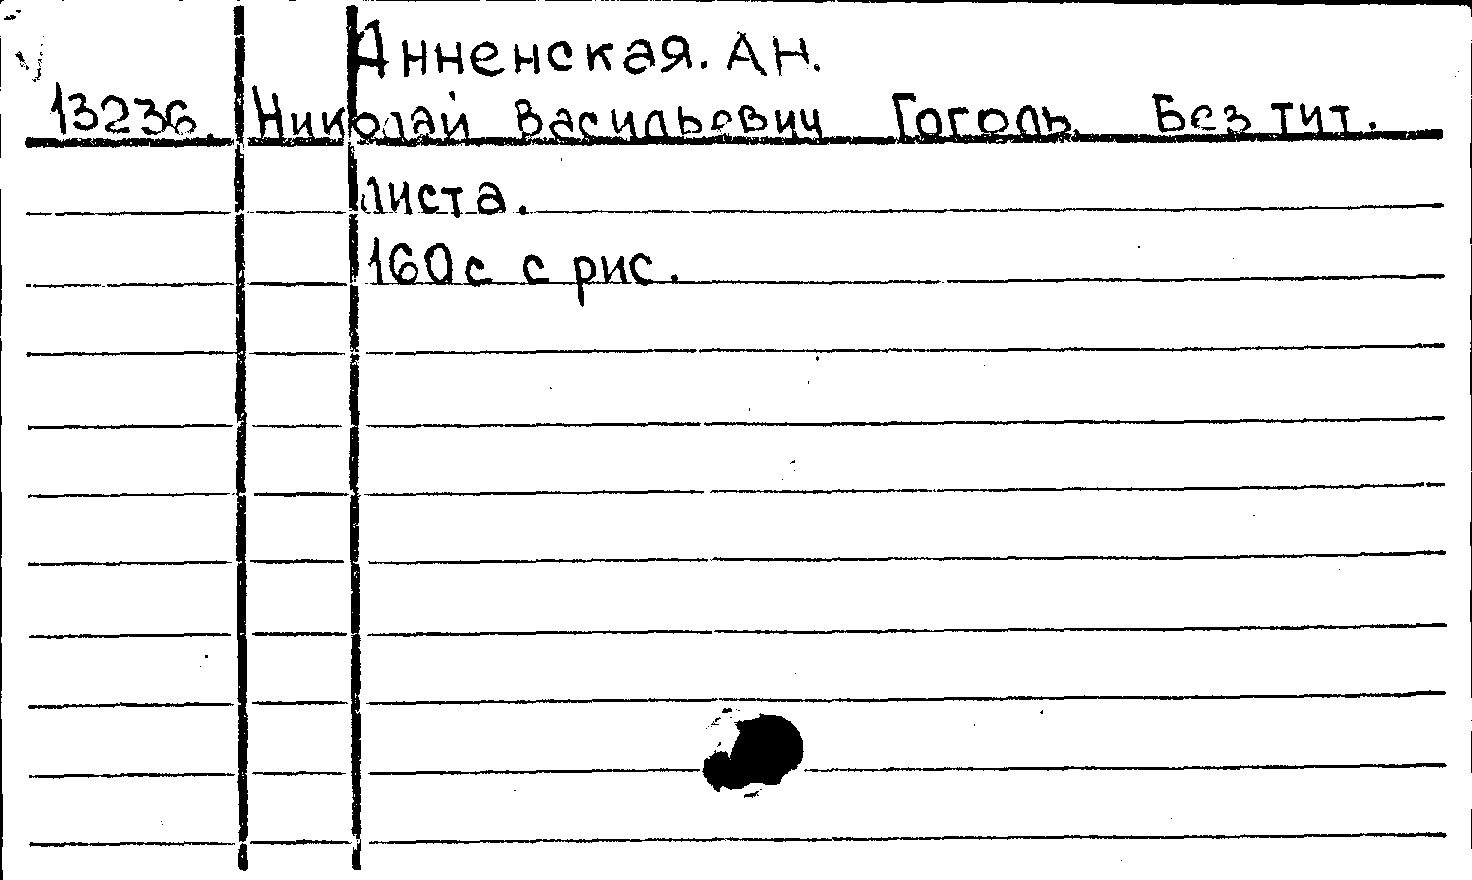 Анненская. А Н.
13236. Николай Васильевич Гоголь Без тит.
листа.
160с с рис.